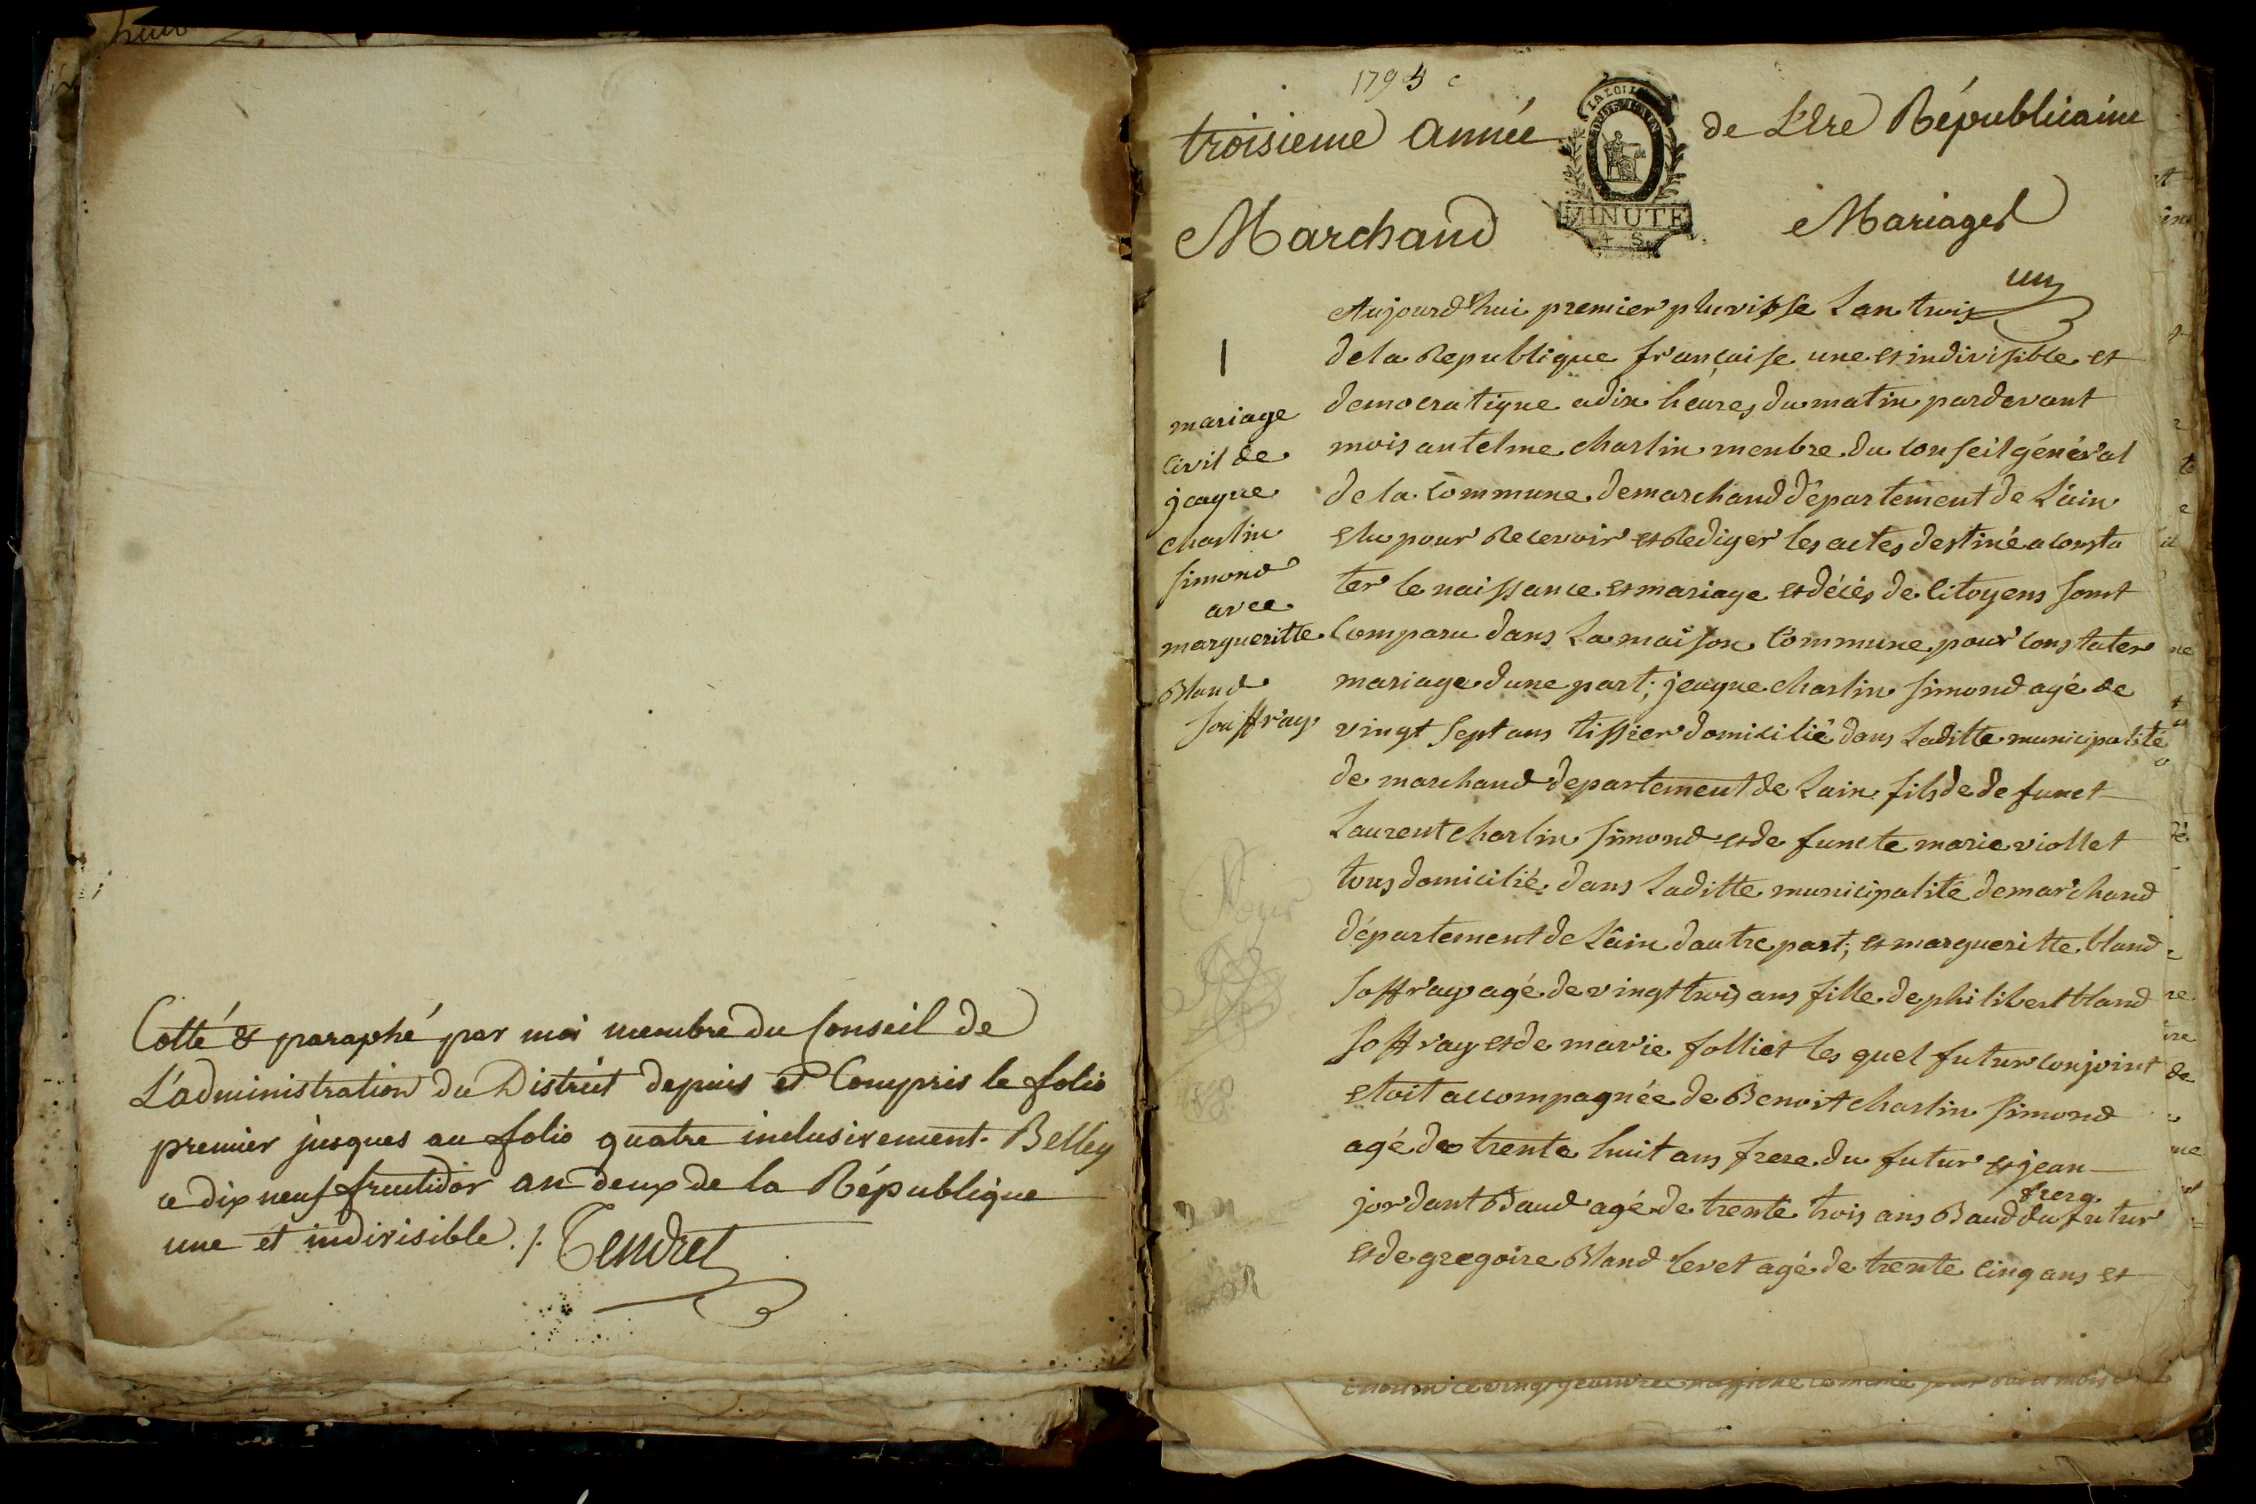 Cotté & paraphé par moi membre du Conseil de
L'administration du District depuis et Compris le folio
premier jusques au folio quatre inclusivement. Belley
ce dix neuf fructidor an deux de la République
une et indivisible ./. Tendret
1795
troisieme année de L'Ere Républicaine
LA LOI
MINUTE
4 S
Marchand Mariages
un
1
mariage
civil de
jeaque
charlin
simond
avec
margueritte
Bland
soffray
Aujourd'hui premier pluviosse Lan trois
de la Republique francaise une et indivisible et
democratique a dix heures du matin pardevant
mois antelme charlin menbre du conseil général
de la commune de marchand département de L'ain
elu pour Recevoir et Rediger les actes destiné a consta
ter le naissance et mariage et décés de citoyens sont
comparu dans La maison Commune pour constater
mariage dune part; jeaque charlin simond agé de
vingt sept ans tissier domicilié dans Laditte municipalité
de marchand departement de Lain fils de defunct
Laurent charlin simond et defuncte marie viollet
tous domicilié dans Laditte municipalité de marchand
département de L'ain dautre part; et margueritte bland
soffray agé de vingt trois ans fille de philibert bland
soffray et de marie folliet les quel futur conjoint
etoit accompagnée de Benoit charlin simond
agé de trente huit ans frere du futur et jean
jordant Baud agé de trente trois ans Baud frere du futur
et de gregoire Bland levet agé de trente cinq ans et